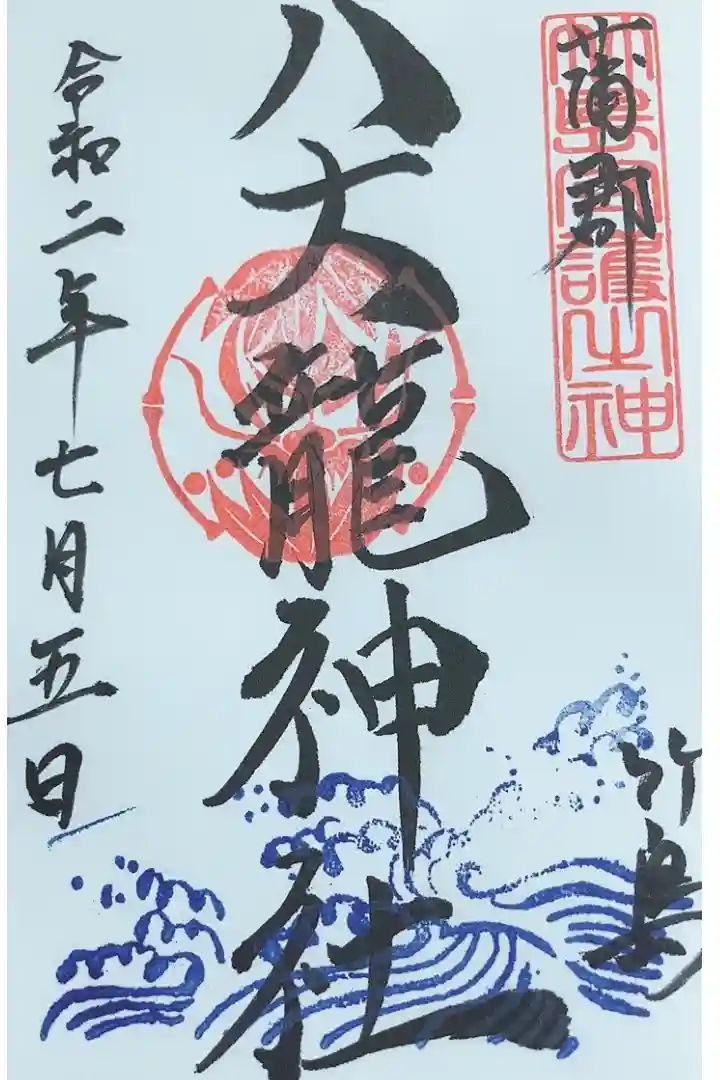 蒲郡
竹島守護之神
竹島
八大龍神社
令和二年七月五日